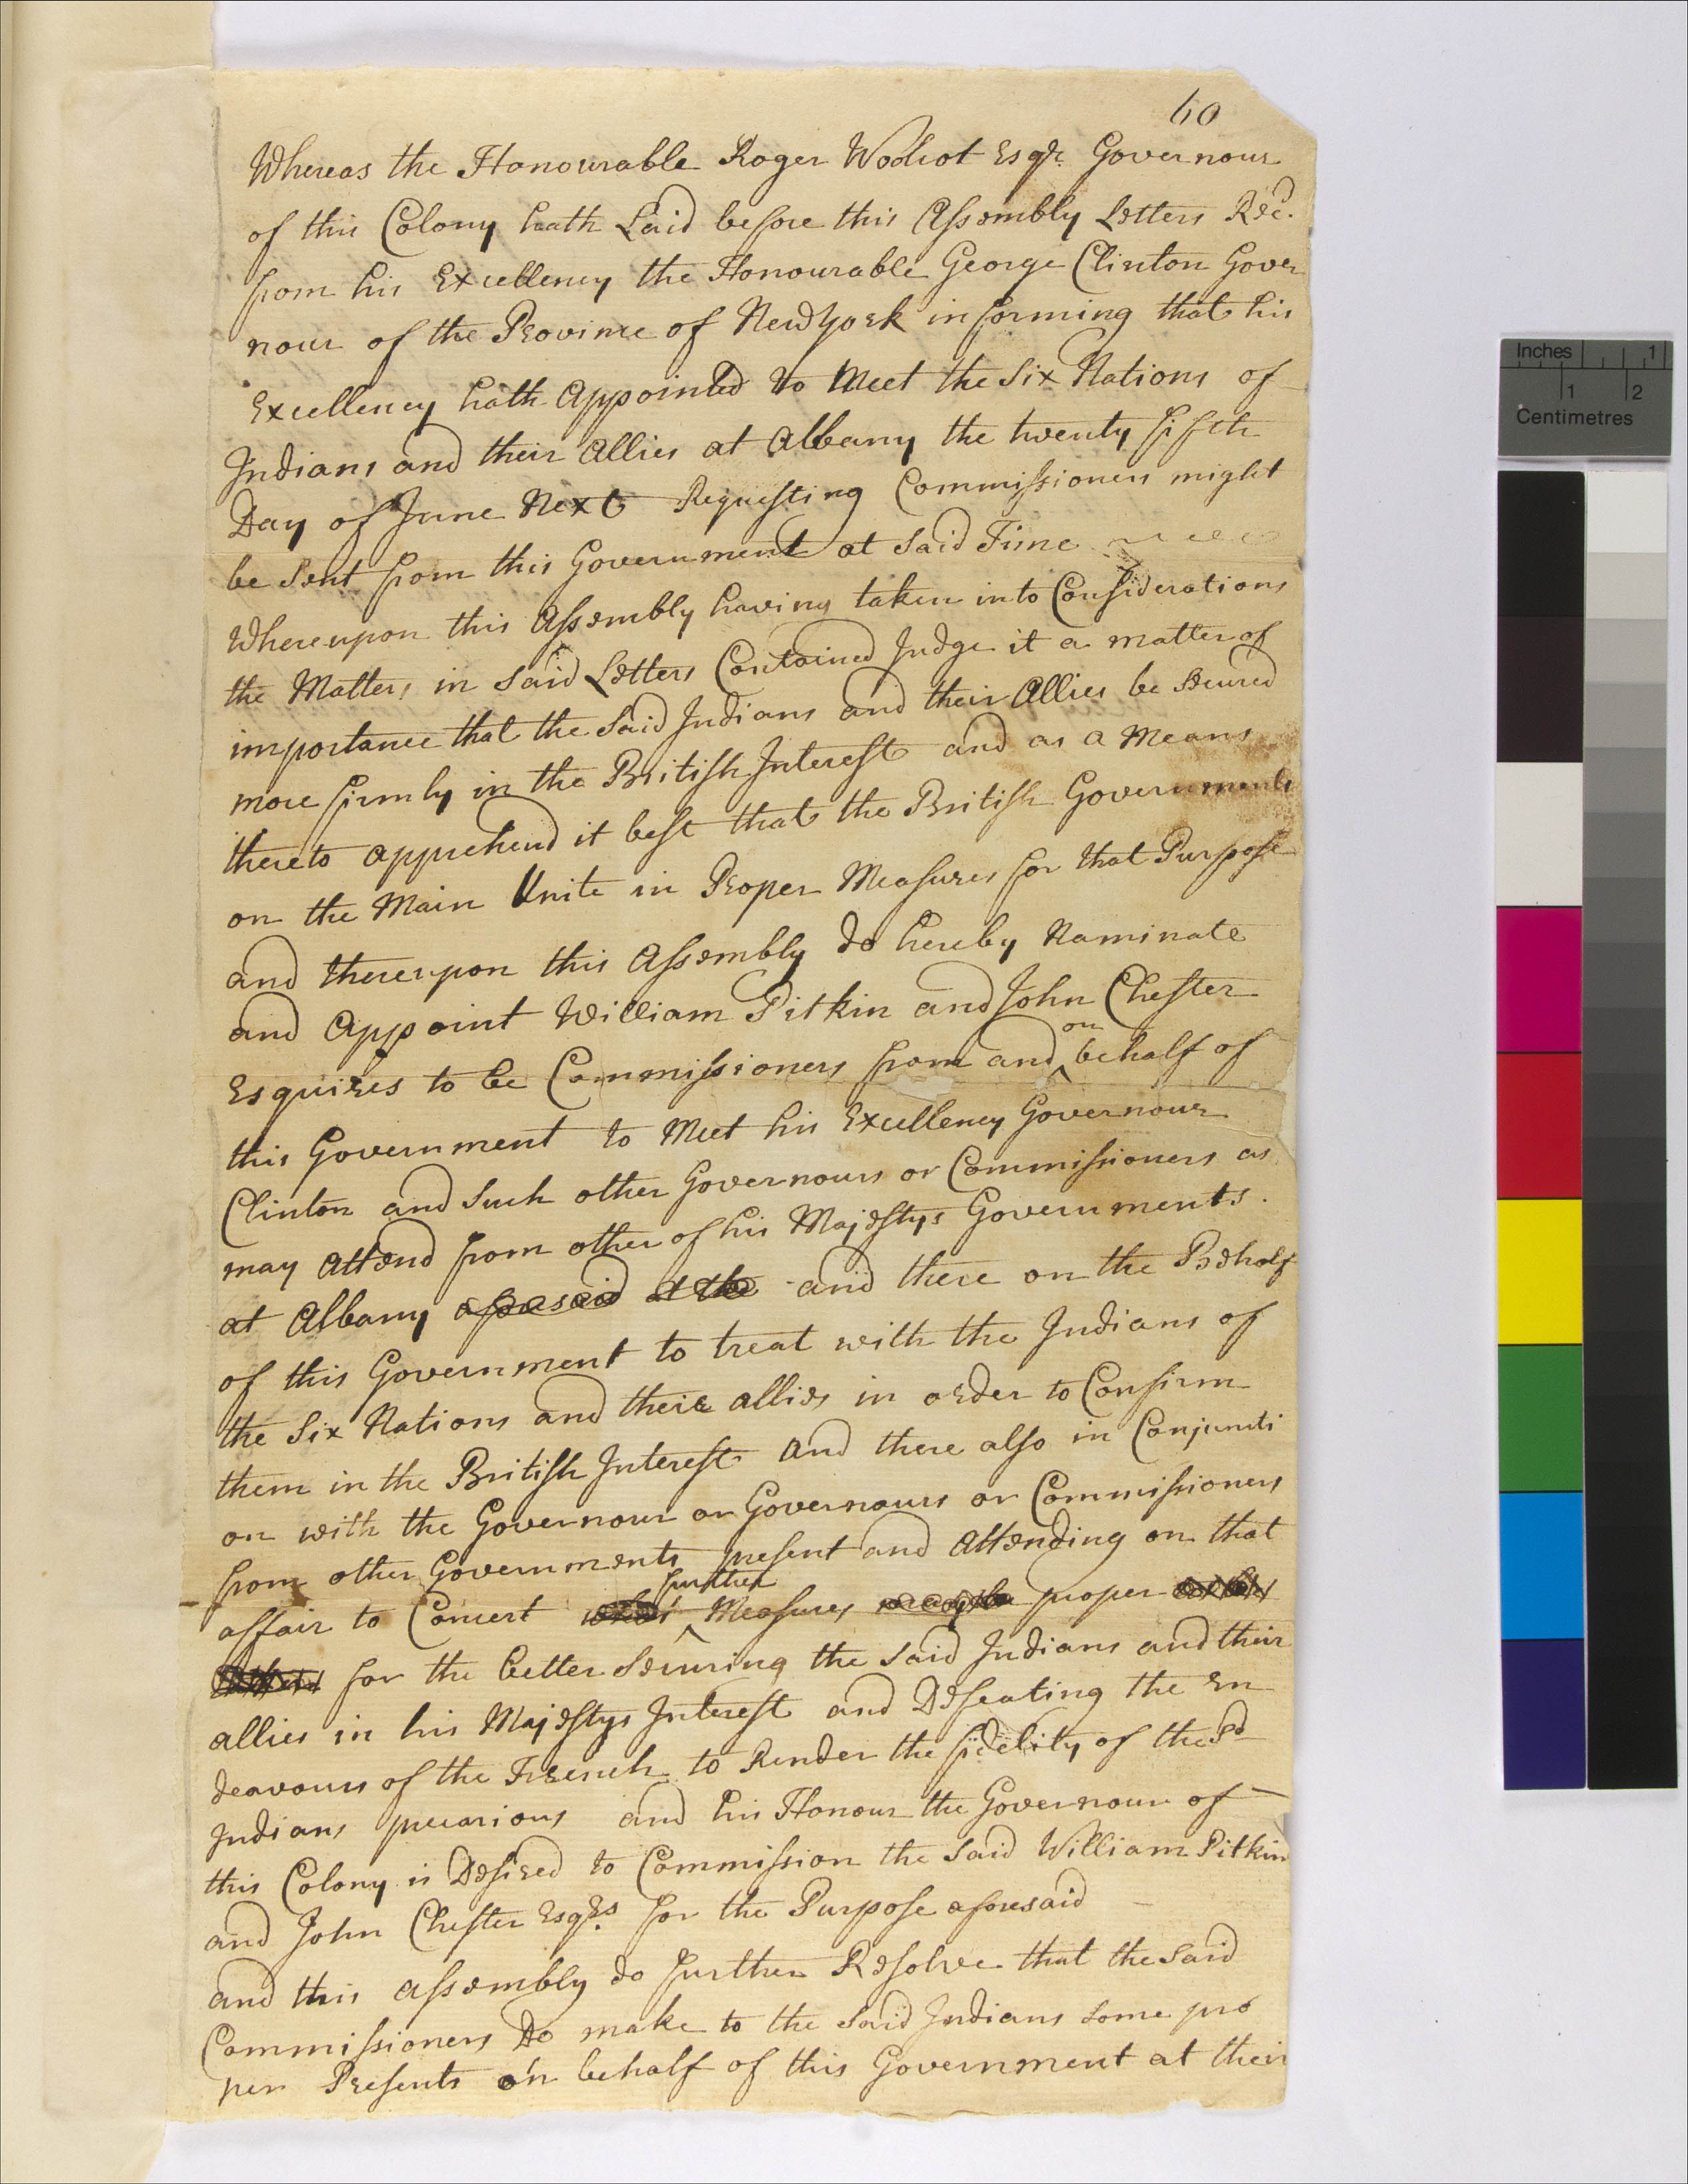 60
Whereas the Honourable Roger Wolcot Esqr. Governour
of this Colony hath Laid before this Assembly Letters Recd.
from his Excellency the Honourable George Clinton Gover
nour of the Province of New York informing that his
Excellency hath Appointed to Meet the Six Nations of
Indians and their Allies at Albany the twenty fifth
Day of June Next Requesting Commissioners might
be Sent from this Government at Said Time
Whereupon this Assembly having taken into Considerations
the Matters in Said Letters Contained Judge it a matter of
importance that the Said Indians and their Allies be Secured
more firmly in the British Interest and as a Means
thereto apprehend it best that the British Governments
on the Main Unite in Proper Measures for that Purpose
and thereupon this Assembly do hereby Nominate
and Appoint William Pitkin and John Chester
on
Esquires to be Commissioners from and ‸ behalf of
this Government to Meet his Excellency Governour
Clinton and Such other Governours or Commissioners as
may Attend from other of his Majestys Governments.
at Albany aforesaid at the and there on the Behalf
of this Government to treat with the Indians of
the Six Nations and their allies in order to Confirm
them in the British Interest and there also in Conjuncti
on with the Governour or Governours or Commissioners
from other Governments present and Attending on that
further
affair to Concert what ‸ Measures may be proper
for the better Securing the Said Indians and their
allies in his Majestys Interest and Defeating the En
deavours of the French to Render the fidelity of the Sd
Indians precarious and his Honour the Governour of
this Colony is Desired to Commission the Said William Pitkin
and John Chester Esqrs. for the Purpose aforesaid
and this assembly do further Resolve that the Said
Commissioners Do make to the Said Indians Some pro
per Presents on behalf of this Government at their
Inches 1
1 2
Centimetres